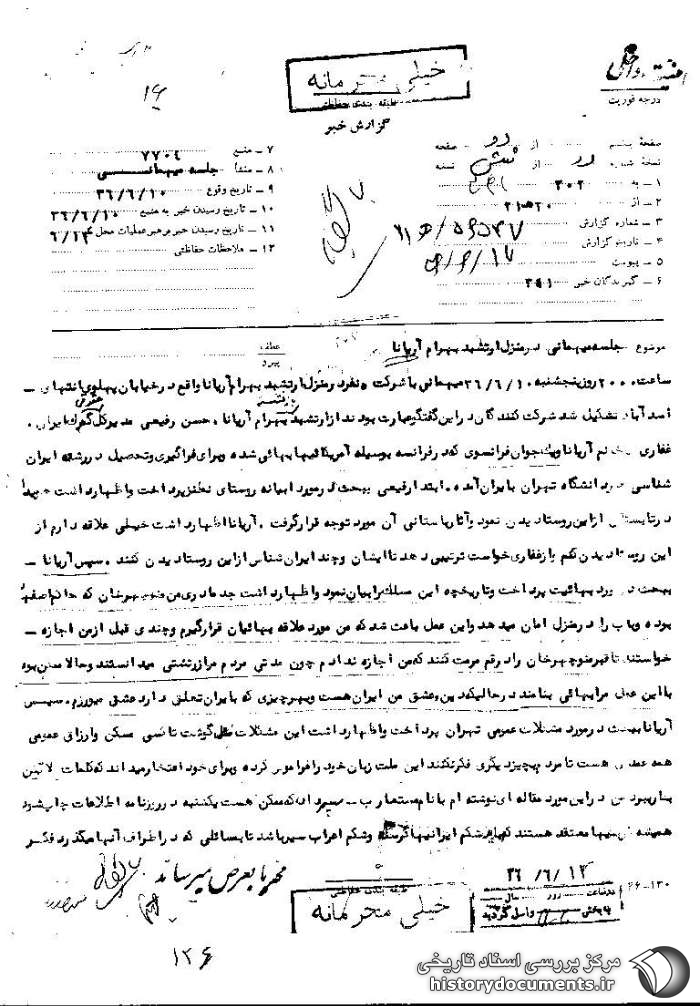 خیلی محرمانه
طبقه بندی حفاظتی
گزارش خبر
درجه فوریت
۱۶
صفحه از دو صفحه
نسخه شماره از شش نسخه
۱ – به ۳۰۲
۲ – از ۲۰ ه ۲۱
۳ – شماره گزارش
۴ – تاریخ گزارش
۵ – پیوست
۶ – گیرندگان خبر ۳۴۱
۷ – منبع ۷۷۰۴
۸ – منشأ جلسه میهمانی
۹ – تاریخ وقوع ۳۶/۶/۱۰
۱۰ – تاریخ رسیدن خبر به منبع ۳۶/۶/۱۰
۱۱ – تاریخ رسیدن خبر به رهبر عملیات محل
۱۲ – ملاحظات حفاظتی
موضوع جلسه میهمانی در منزل ارتشبد بهرام آریانا
عطف
پیرو
ساعت ۲۰۰۰ روز پنجشنبه ۳۶/۶/۱۰ میهمانی با شرکت نفر در منزل ارتشبد بهرام آریانا واقع در خیابان پهلوی انتهای –
اسدآباد تشکیل شد شرکت کنندگان در این گفتگو عبارت بودند از ارتشبد بهرام آریانا ، حسن رفیعی مدیر کل گمرک ایران ،
غفاری خانم آریانا و یک جوان فرانسوی که در فرانسه بوسیله آمریکائیها بهائی شده و برای فراگیری و تحصیل در رشته ایران
شناسی در دانشگاه تهران بایران آمده . ابتدا رفیعی ببحث در مورد ابیانه روستای نطنز پرداخت و اظهار داشت
در تابستان از این روستا دیدن نمود و آثار باستانی آن مورد توجه قرار گرفت . آریانا اظهار داشت خیلی علاقه دارم از
این روستا دیدن کنم و از غفاری خواست ترتیبی دهد تا ایشان و چند ایران شناس از این روستا دیدن کنند . سپس آریانا –
ببحث در مورد بهائیت پرداخت و تاریخچه این مسلک را بیان نمود و اظهار داشت جد مادری من منوچهرخان که حاکم اصفهان
بوده و باب را در منزل امان میدهد و این عمل باعث شد که من مورد علاقه بهائیان قرار گیرم و چندی قبل از من اجازه –
خواستند تا قبر منوچهرخان را در قم مرمت کنند که من اجازه ندادم چون مدتی مردم مرا زرتشتی میدانستند و حالا ممکن بود
با این عمل مرا بهائی بنامند در حالیکه دین و عشق من ایران هست و بهر چیزی که بایران تعلق دارد عشق میورزم . سپس
آریانا ببحث در مورد مشکلات عمومی تهران پرداخت و اظهار داشت این مشکلات مثل گوشت تاکسی مسکن و ارزاق عمومی
همه عمدی هست تا مردم بچیز دیگری فکر نکنند این ملت زبان خود را فراموش کرده و برای خود افتخار میداند که کلمات لاتین
بکار ببرد من در این مورد مقاله ای نوشته ام با نام مستعار ب – سپرداد که ممکن هست یکشنبه در روزنامه اطلاعات چاپ شود
همیشه معتقد هستند که باید شکم ایرانیها گرسنه و شکم اعراب سیر باشد تا بمسائلی که در اطراف آنها میگذرد فکر
محترماً بعرض میرساند
طبقه بندی حفاظتی
خیلی محرمانه
۳۶/۶/۱۴
در ساعت روز سال
به بخش واصل گردید
۶۶-۱۳۰
۱۲۶
مرکز بررسی اسناد تاریخی
historydocuments.ir